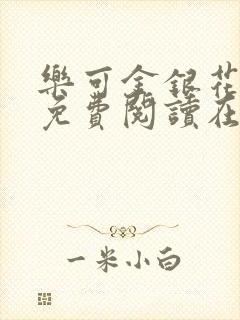 樂可金銀花
免費閱讀在
一米小白